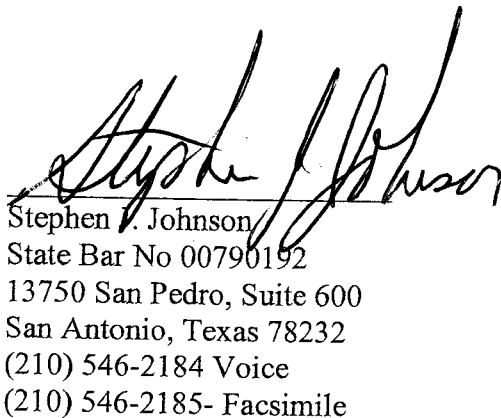 Stephen J Johnson
Stephen Johnson
State Bar No 00790192
13750 San Pedro, Suite 600
San Antonio, Texas 78232
(210) 546-2184 Voice
(210) 546-2185- Facsimile